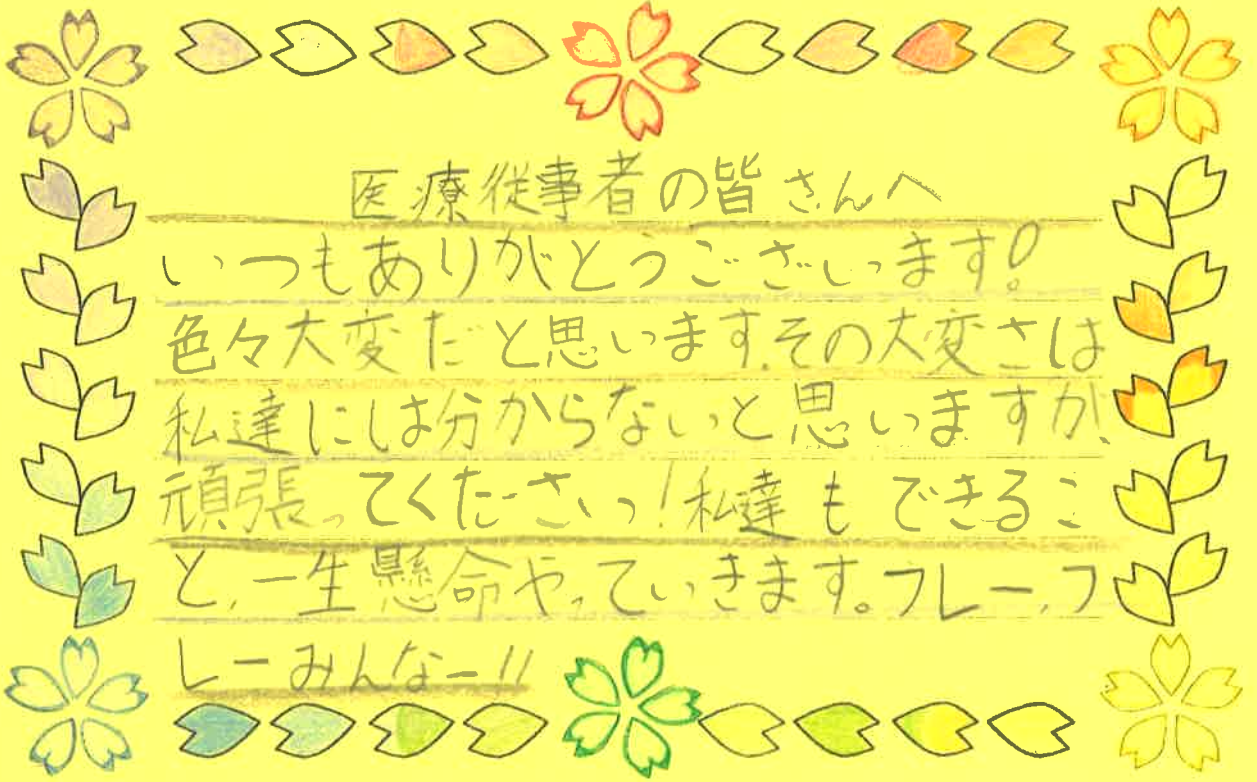 医療従事者の皆さんへ
いつもありがとうございます!
色々大変だと思います。その大変さは
私達には分からないと思いますが、
頑張ってください!私達もできるこ
と、一生懸命やっていきます。フレー、フ
レーみんなー!!